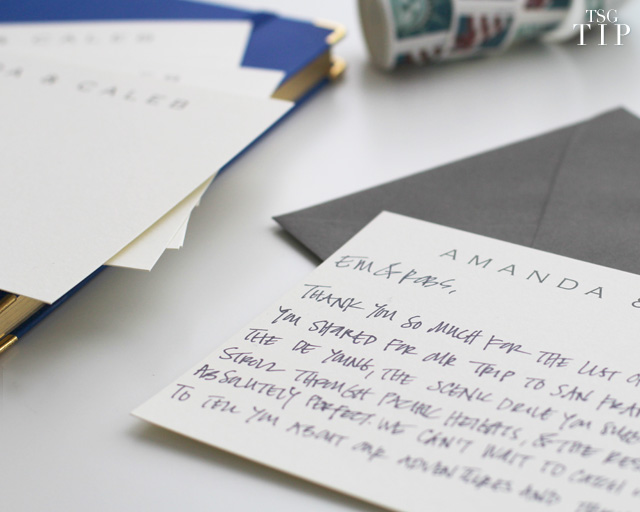 TSG
TIP
A & CALEB
AMANDA &
EM & ROBS,
THANK YOU SO MUCH FOR THE LIST
YOU SHARED FOR OUR TRIP TO SAN FRAN
THE DE YOUNG, THE SCENIC DRIVE YOU
STROLL THROUGH PACIFIC HEIGHTS, & THE
ABSOLUTELY PERFECT. WE CAN'T WAIT TO CATCH
TO TELL YOU ABOUT OUR ADVENTURES AND